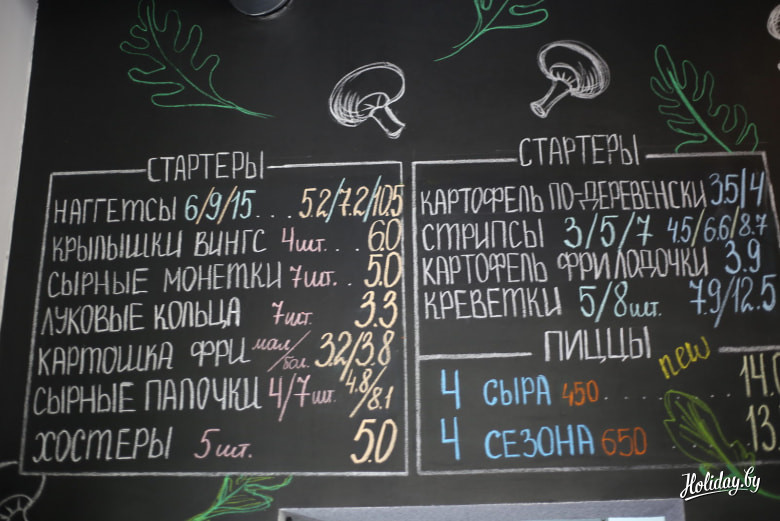 СТАРТЕРЫ
НАГГЕТСЫ 6/9/15... 5.2/7.2/10.5
КРЫЛЫШКИ ВИНГС 4шт... 6.0
СЫРНЫЕ МОНЕТКИ 7шт.. 5.0
ЛУКОВЫЕ КОЛЬЦА 7шт. 3.3
КАРТОШКА ФРИ мал/бол. 3.2/3.8
СЫРНЫЕ ПАЛОЧКИ 4/7шт. 4.8/8.1
ХОСТЕРЫ 5шт. 5.0
СТАРТЕРЫ
КАРТОФЕЛЬ ПО-ДЕРЕВЕНСКИ 3.5/4
СТРИПСЫ 3/5/7 4.5/6.6/8.7
КАРТОФЕЛЬ ФРИ ЛОДОЧКИ 3.9
КРЕВЕТКИ 5/8шт. 7.9/12.5
ПИЦЦЫ
new
4 СЫРА 450........ 14.
4 СЕЗОНА 650 ....... 13.
Holiday.by